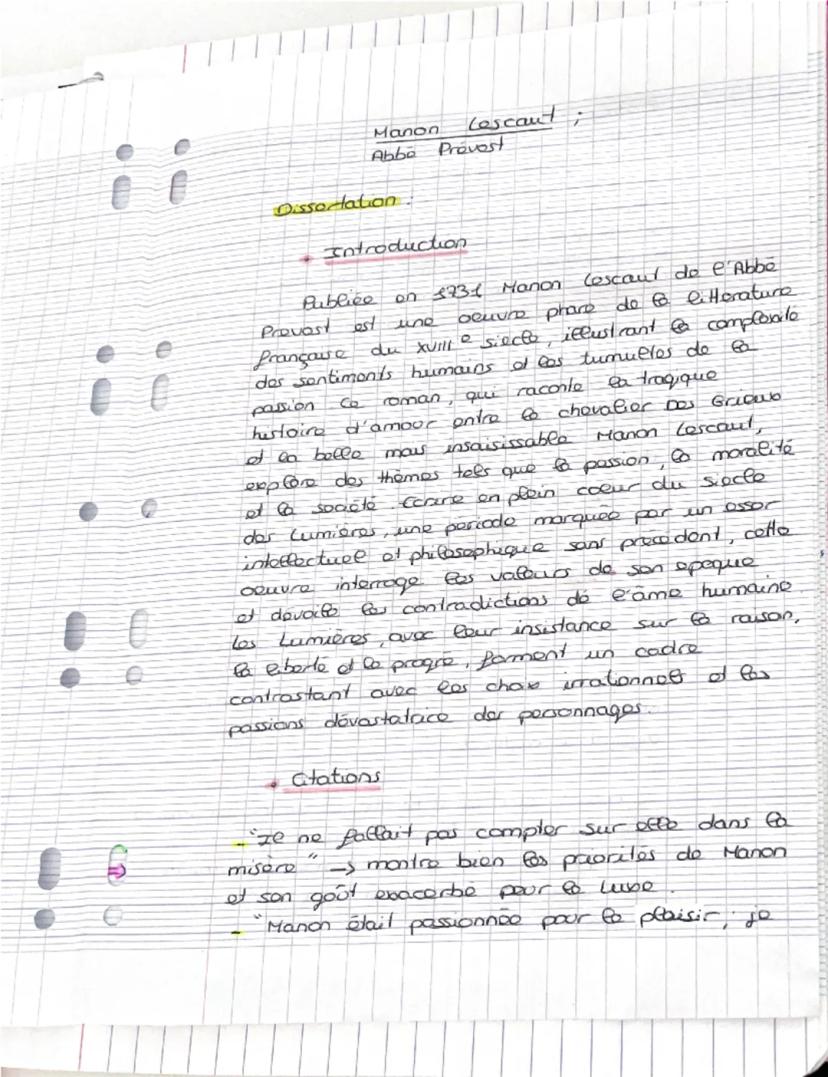 Manon Lescaut ;
Abbé Prévost
Dissertation :
Introduction
Publiée en 1731 Manon Lescaut de l'Abbé
Prevost est une oeuvre phare de la littérature
française du XVIIIe siècle, illustrant la complexité
des sentiments humains et les tumueles de la
passion ce roman, qui raconte la tragique
histoire d'amour entre le chevalier Des Grieux
et la belle mais insaisissable Manon Lescaut,
explore des thèmes tels que la passion, la moralité
et la société. Ecrire en plein coeur du siècle
des Lumières, une periode marquée par un essor
intellectuel et philosophique sans précédent, cette
oeuvre interroge les valeurs de son epoque
et dévoile les contradictions de l'âme humaine.
Les Lumières, avec leur insistance sur la raison,
la liberte et le progrè, forment un cadre
contrastant avec les choix irrationnels et les
passions dévastatrice des personnages.
Citations
- "Il ne fallait pas compter sur elle dans la
misère" -> montre bien les priorités de Manon
et son goût exacerbé pour le luxe.
- "Manon était passionnée pour le plaisir ; je